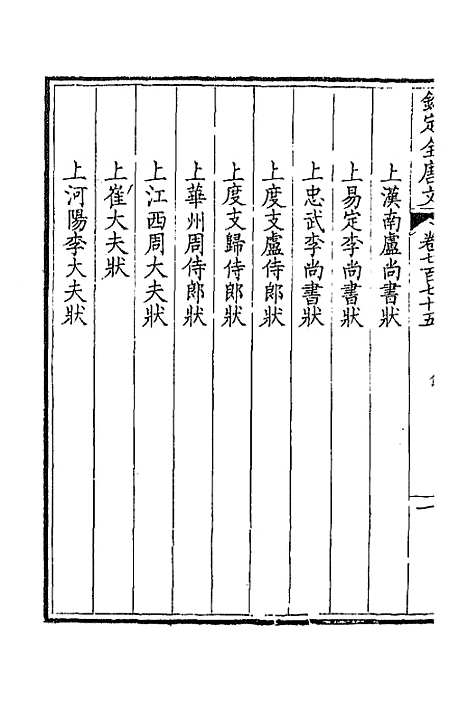 欽定全唐文 卷七百七十五 一
上漢南盧尚書狀
上易定李尚書狀
上忠武李尚書狀
上度支盧侍郎狀
上度支歸侍郎狀
上華州周侍郎狀
上江西周大夫狀
上崔大夫狀
上河陽李大夫狀